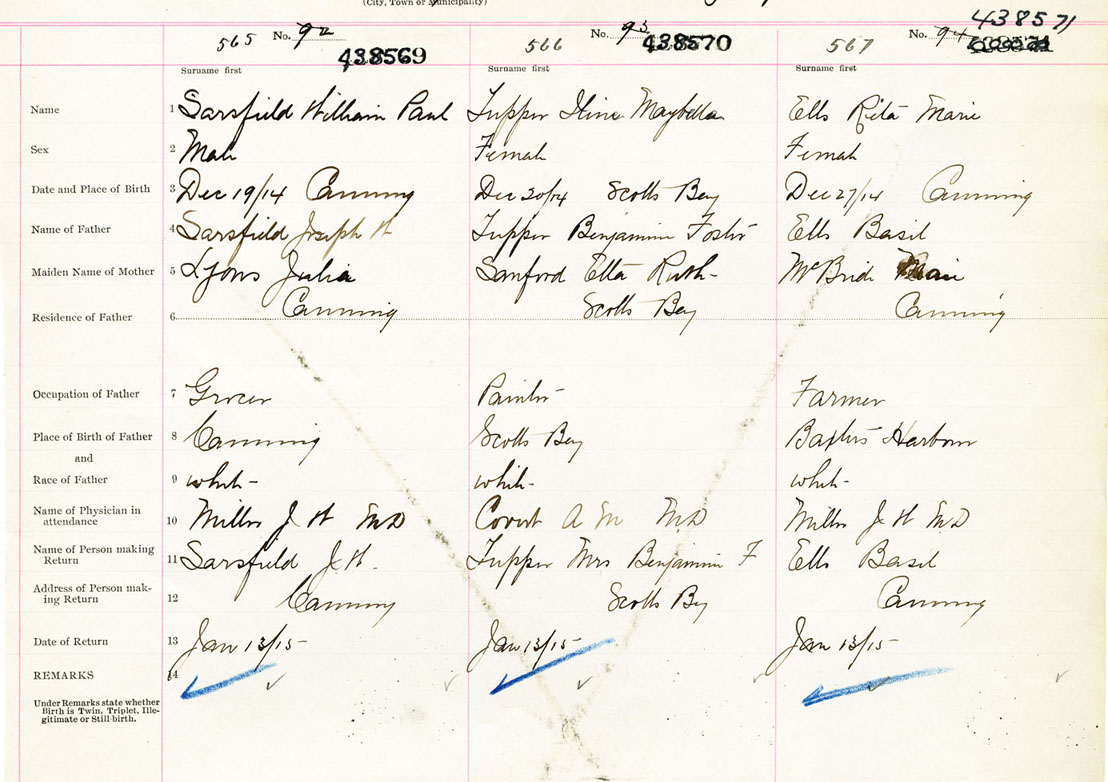 (City, Town or Municipality)
438571
565 No. 92 438569 566 No. 93 438570 567 No. 94
Surname first Surname first Surname first
Name 1 Sarsfield William Paul Tupper Maybella Ells Rita Marie
Sex 2 Male Female Female
Date and Place of Birth 3 Dec 19/14 Canning Dec 20/14 Scotts Bay Dec 27/14 Canning
Name of Father 4 Sarsfield Joseph H Tupper Benjamin Foster Ells Basil
Maiden Name of Mother 5 Lyons Julia Sanford Etta Ruth McBride
Residence of Father 6 Canning Scotts Bay Canning
Occupation of Father 7 Grocer Painter Farmer
Place of Birth of Father 8 Canning Scotts Bay Baxters Harbour
and
Race of Father 9 white white white
Name of Physician in
attendance 10 Miller J H MD Covert A M MD Miller J H MD
Name of Person making
Return 11 Sarsfield J H. Tupper Mrs Benjamin F Ells Basil
Address of Person mak-
ing Return 12 Canning Scotts Bay Canning
Date of Return 13 Jan 13/15 Jan 13/15 Jan 13/15
REMARKS 14
Under Remarks state whether
Birth is Twin, Triplet, Ille-
gitimate or Still-birth.